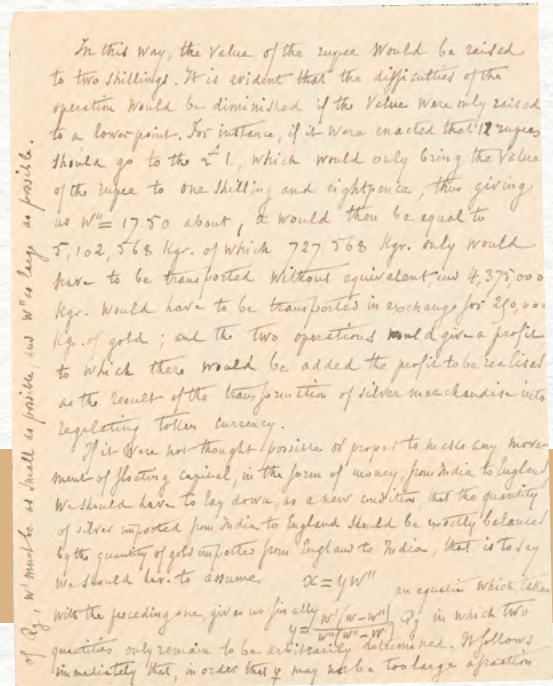 In this way, the value of the rupee would be raised
to two shillings. It is evident that the difficulties of the
operation would be diminished if the value were only raised
to a lower point. For instance, if it were enacted that 12 rupees
should go to the £ 1., which would only bring the value
of the rupee to one shilling and eightpence, thus giving
us w'' = 17.50 about, x would then be equal to
5,102,568 Kgr. of which 727 568 Kgr. only would
have to be transported without equivalent, and 4,375,000
Kgr. would have to be transported in exchange for 250,000
Kgr. of gold ; and the two operations would give a profit
to which there would be added the profit to be realised
as the result of the transformation of silver merchandise into
regulating token currency.
If it were not thought possible or proper to make any move-
ment of floating capital, in the form of money, from India to England
we should have to lay down, as a new condition, that the quantity
of silver imported from India to England should be exactly balanced
by the quantity of gold imported from England to India, that is to say
we should have to assume x = y w''
an equation which, taken
with the preceding one, gives us finally y = w'(w-w'')/w''(w''-w') Qg in which two
quantities only remain to be arbitrarily determined. It follows
immediately that, in order that y may not be too large a fraction
of Qg, w' must be as small as possible, and w'' as large as possible.